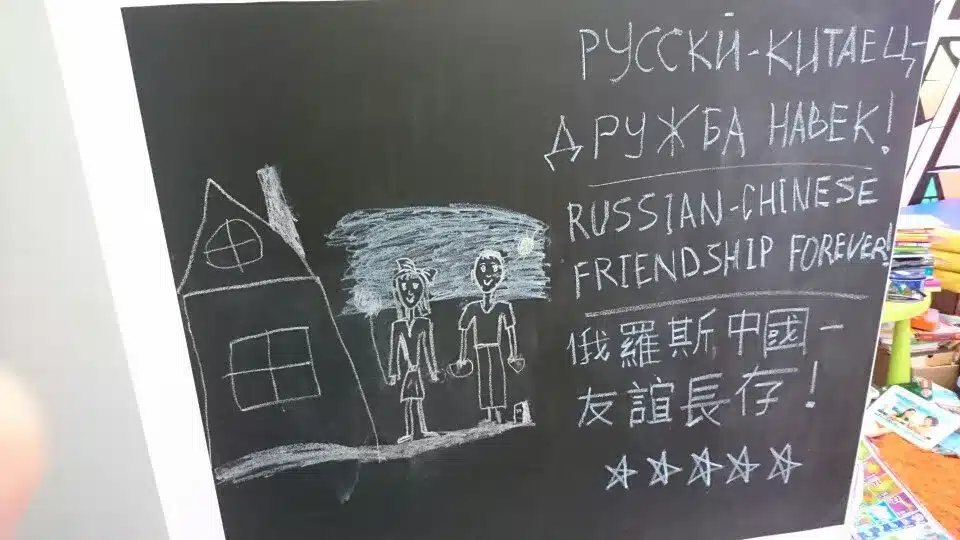 РУССКИЙ-КИТАЕЦ-
ДРУЖБА НАВЕК!
RUSSIAN-CHINESE
FRIENDSHIP FOREVER!
俄羅斯中國-
友誼長存!